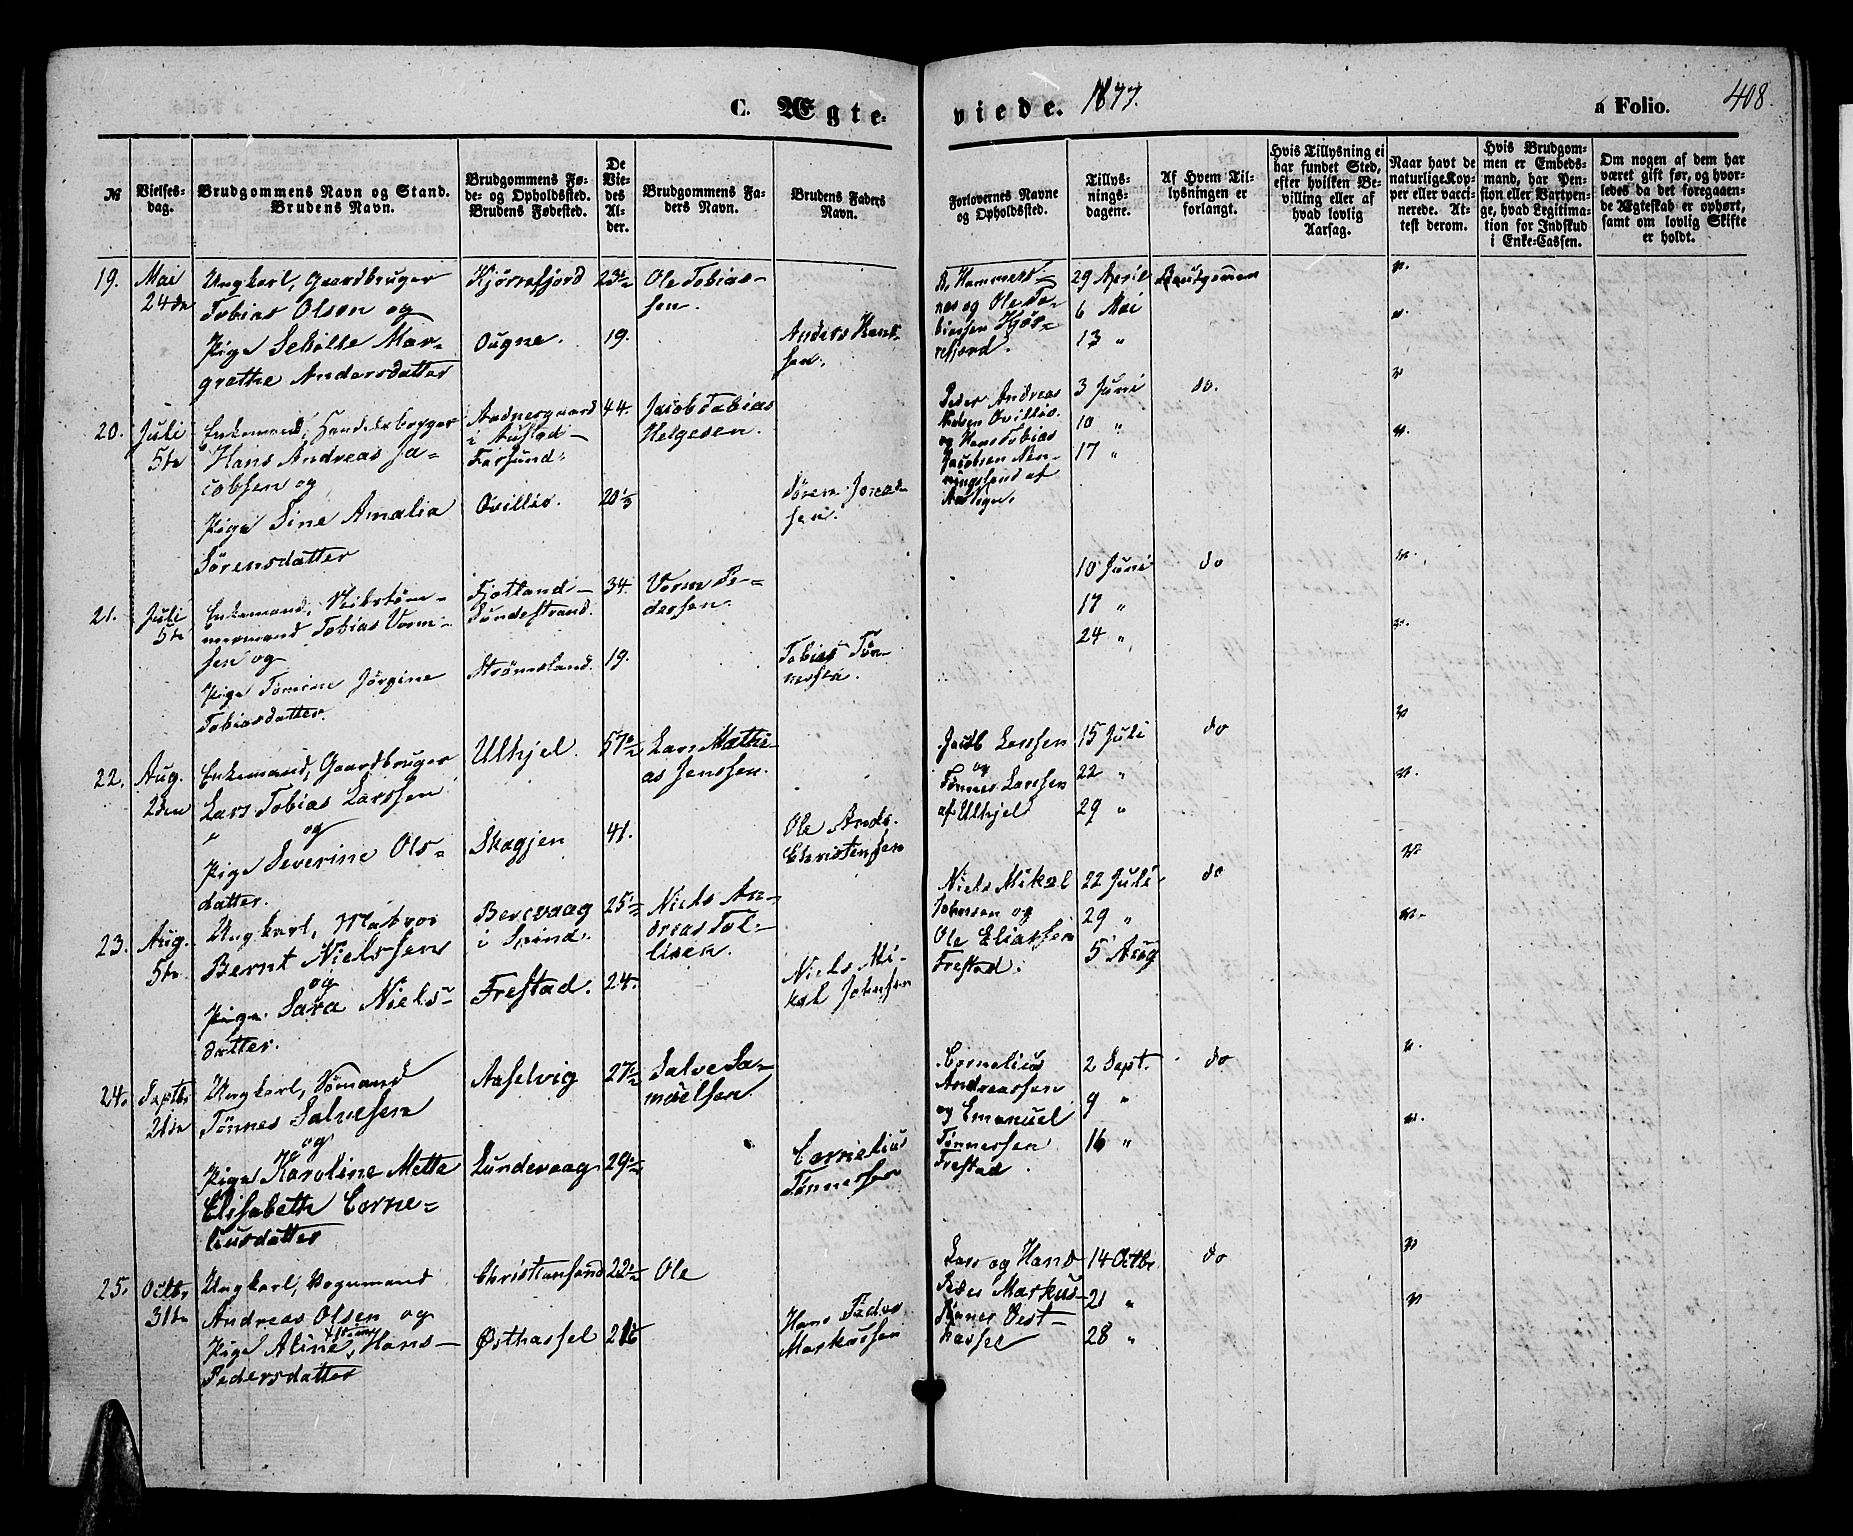 C. Ægte-
viede. 1877.
a Folio. 408.
№
Vielses-
dag.
Brudgommens Navn og Stand.
Brudens Navn.
Brudgommens Fø-
de- og Opholdssted.
Brudens Fødested.
De
Vie-
des
Al-
der.
Brudgommens Fa-
ders Navn.
Brudens Faders
Navn.
Forlovernes Navne
og Opholdssted.
Tillys-
nings-
dagene.
Af Hvem Til-
lysningen er
forlangt.
Hvis Tillysning ei
har fundet Sted,
efter hvilken Be-
villing eller af
hvad lovlig
Aarsag.
Naar havt de
naturlige Kop-
per eller vacci-
nerede. At-
test derom.
Hvis Brudgom-
men er Embeds-
mand, har Pen-
sion eller Vartpen-
ge, hvad Legitima-
tion for Indskud
i Enke-Cassen.
Om nogen af dem har
været gift før, og hvor-
ledes da det foregaaen-
de Ægteskab er ophørt,
samt om lovlig Skifte
er holdt.
19.
Mai
24de
Ungkarl, Gaardbruger
Tobias Olsen og
Pige Seholte Mar-
grethe Andersdatter
Kjørrefjord
Ougne.
23½
19.
Ole Tobias-
sen.
Anders Hans-
sen.
og Ole To-
biassen Kjør-
refjord.
29 April
6 Mai
13 "
Brudgommen
20.
Juli
5te
Enkemand, Handelsborger
Hans Andreas Ja-
cobsen og
Pige Sine Amalia
Sørensdatter
i Austad -
Farsund.
Ovillie.
44.
20⅓
Jacob Tobias
Helgesen.
Søren Jonas-
sen.
Peder Andreas
og Hans Tobias
Jacobsen
3 Juni
10 "
17 "
do.
21.
Juli
5te
Enkemand,
Tobias Vorm-
sen og
Pige Tomine Jörgine
Tobiasdatter.
Fjotland -
Sundestrand.
Strømsland.
34.
19.
Vorm Pe-
dersen.
Tobias Tøn-
nessen.
10 Juni
17 "
24 "
do
22.
Aug.
2den
Enkemand, Gaardbruger
Lars Tobias Larssen
og
Pige Severine Ols-
datter.
Ulhjel.
Skagjen
57½
41.
Lars Mathi-
as Jenssen.
Ole Ands.
Christenssen
Jacob Larssen
og
Tønnes Larssen
af Ulhjel
15 Juli
22 "
29 "
do
23.
Aug.
5te
Ungkarl, Matros
Bernt Nielssen
og
Pige Sara Niels-
datter.
Bervaag
i Spind.
Frestad.
25½
24.
Niels An-
dreas Tol-
lisen.
Niels Mi-
kal Johnsen
Niels Mikal
Johnsen og
Ole Eliassen
Frestad.
22 Juli
29 "
5 Aug
do
24.
Septbr
21de
Ungkarl, Sømand
Tønnes Salvesen
og
Pige Karoline Mette
Elisabeth Corne-
liusdatter
Aaselvig
Lundevaag
27½
29½
Salve Sa-
muelsen.
Cornelius
Tønnessen
Cornelius
Andreassen
og Emanuel
Tønnessen
Frestad
2 Sept.
9 "
16 "
do
25.
Octbr
31te
Ungkarl, Vognmand
Andreas Olsen og
Pige Aline Hans-
Pedersdatter
Christiansand
Østhassel
22½
Ole
Hans Peder
Markussen
Lars og Hans
Peder Markus-
sønner Vest-
hassel
14 Octbr
21 "
28 "
do